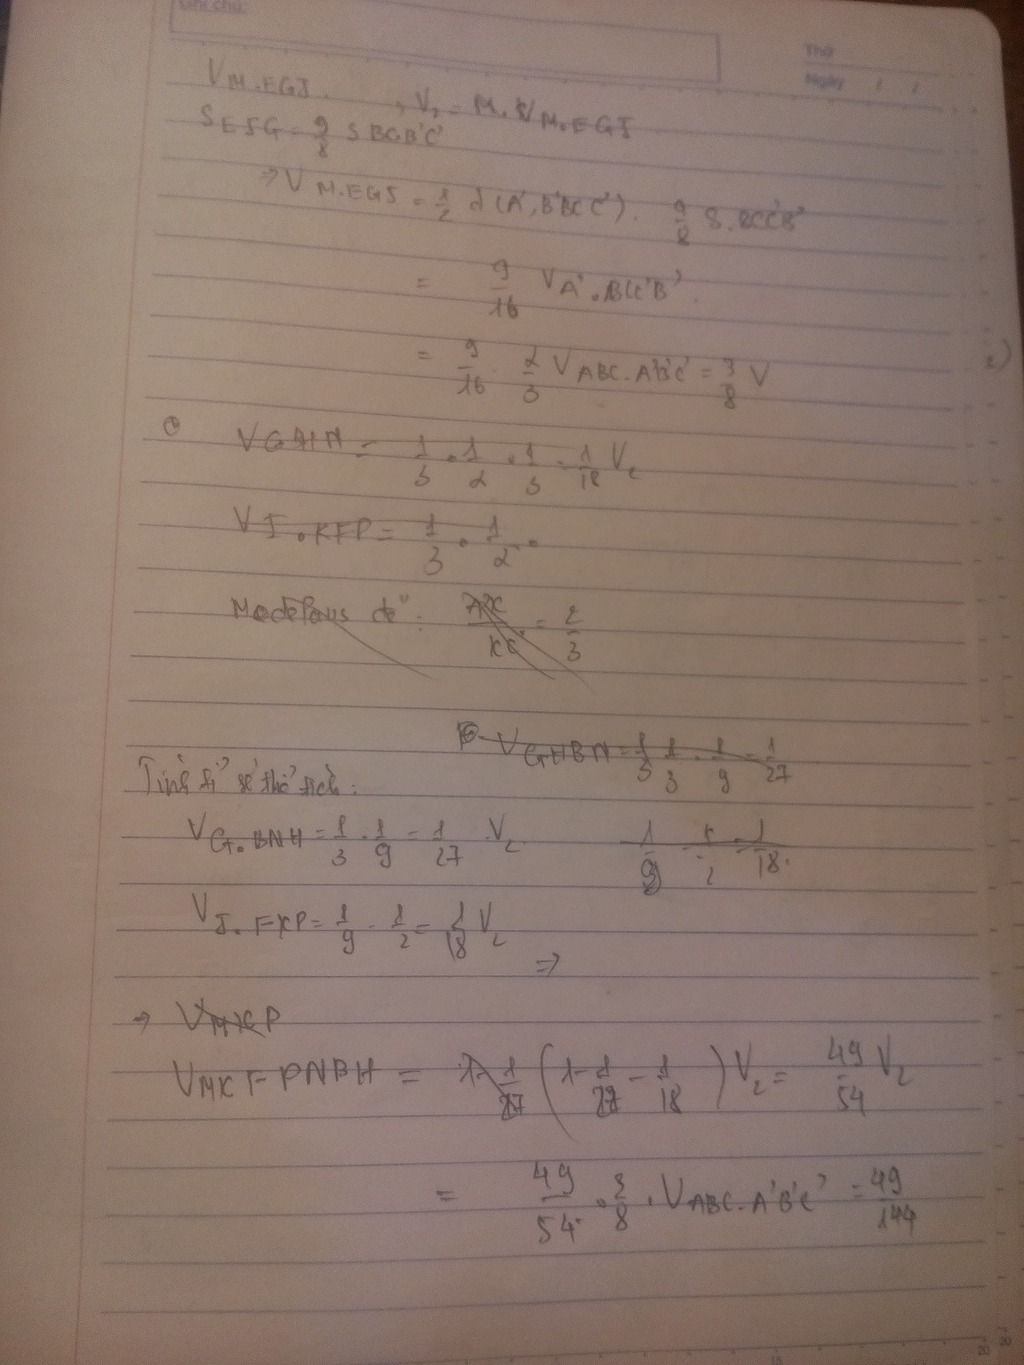 Ghi chú:
Thứ
Ngày / /
V M.EGJ , V₂ = V M.EGJ
S EJG = 9/8 S BCB'C'
⇒ V M.EGJ = 1/2 d(A', B'BCC') . 9/8 S.BCC'B'
= 9/16 V A'.BCC'B'
= 9/16 . 2/3 V ABC.A'B'C' = 3/8 V
1/3 . 1/2 . 1/3 = 1/18 V₂
V J.KFP = 1/3 . 1/2 .
= 2/3
V GHBN = 1/3 1/3 . 1/9 = 1/27
Tính tỉ số thể tích:
V G.BNH = 1/3 . 1/9 = 1/27 . V₂ 1/9 1/2 = 1/18.
V J.FKP = 1/9 . 1/2 = 1/18 V₂
⇒
→ V MKP
V MKFPNBH = 1 - 1/27 (1 - 1/27 - 1/18) V₂ = 49/54 V₂
= 49/54 . 3/8 . V ABC.A'B'C' = 49/144
15
20